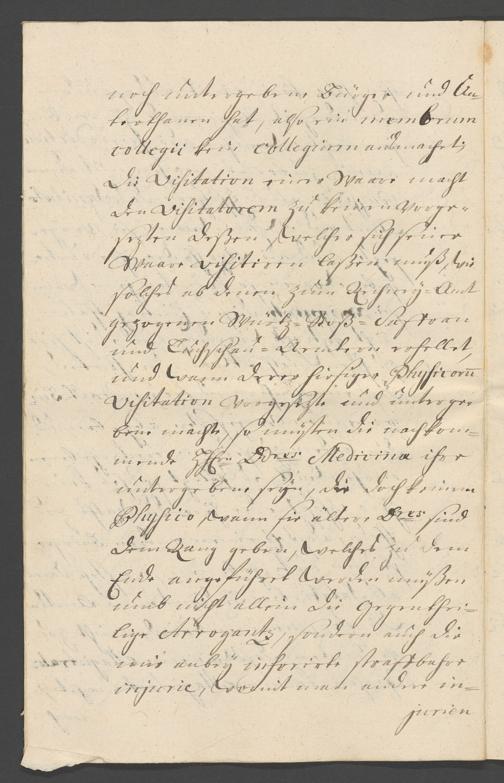 noch untergebene Bürger und Un=
terthanen hat, also ein membrum
collegii kein collegium ausmachet;
Die Visitation einer Waare macht
den Visitatorem zu keinem Vorge=
sezten deßen, welcher sich seine
Waare visitiren laßen muß, wie
solches ab denen zum Rechney=Amt
gezogenen Wurtz= Saffran
und Tuchschau=Aemtern erhellet,
und wann derer hiesiger Physicorum
Visitation vorgesezte und unterge
bene machte, so müsten die nachkom=
mende Hhrn. Ddres Medicinæ ihre
untergebene seyn, die doch keinem
Physico, wann sie ältere Dres sind
den Rang geben, welches zu dem
Ende angeführet werden müßen
umb nicht allein die gegenthei=
lige Arrogantz, sondern auch die
mir anbey inferirte straffbahre
injurie, womit man andere in=
jurien